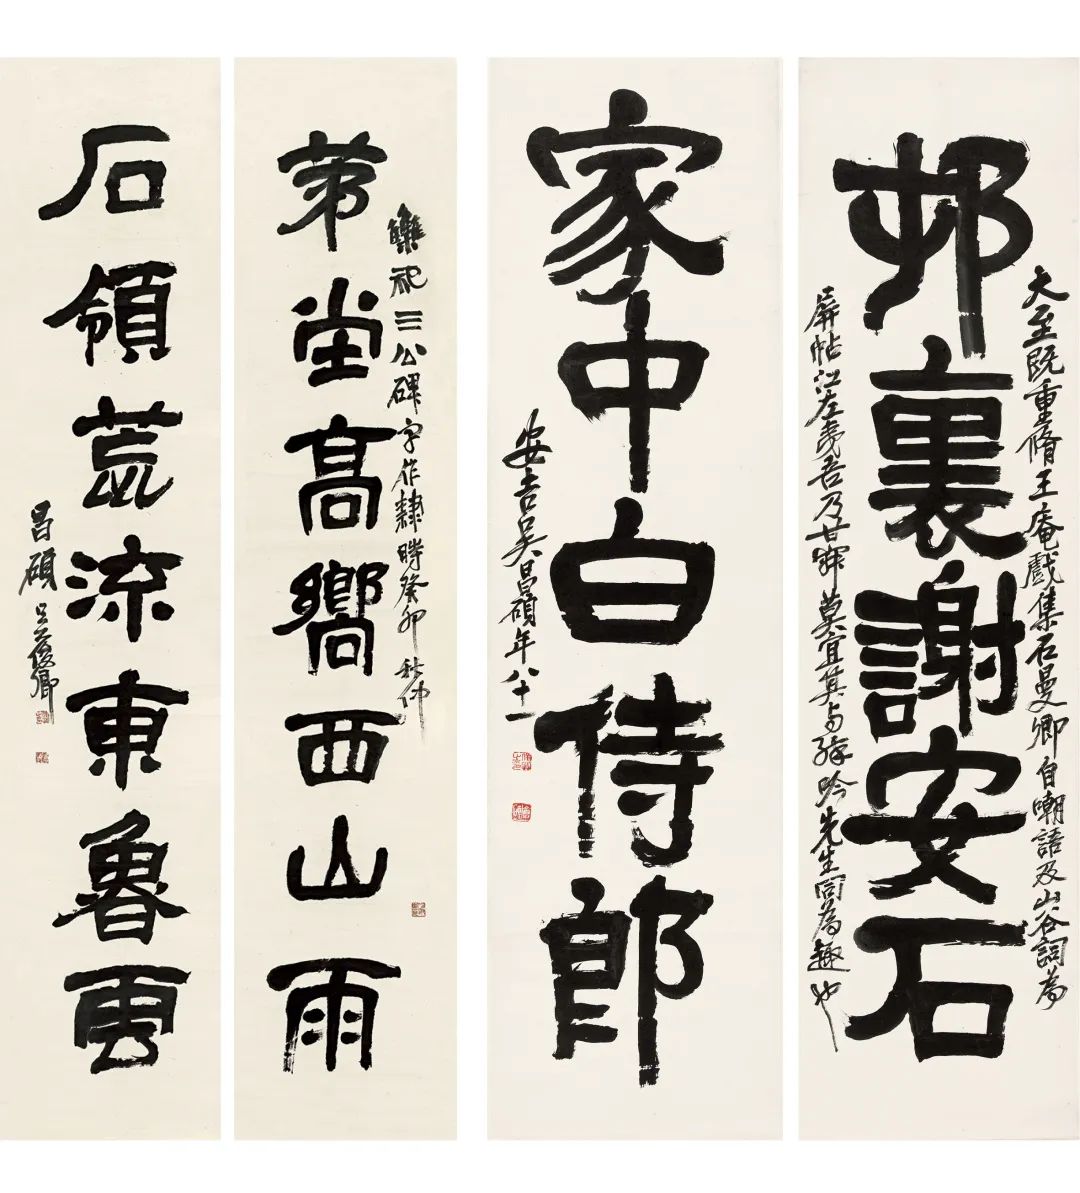 邨裏謝安石
大至既重脩王庵戲集石曼卿自嘲語及山谷詞為
屏帖江左夷吾乃甘寐莫宜其與吟先生同為趣也
家中白侍郎
安吉吳昌碩年八十一
茀堂高嚮西山雨
雧祀三公碑字作隸時癸卯秋仲
石領荒流東魯雲
昌碩吳俊卿